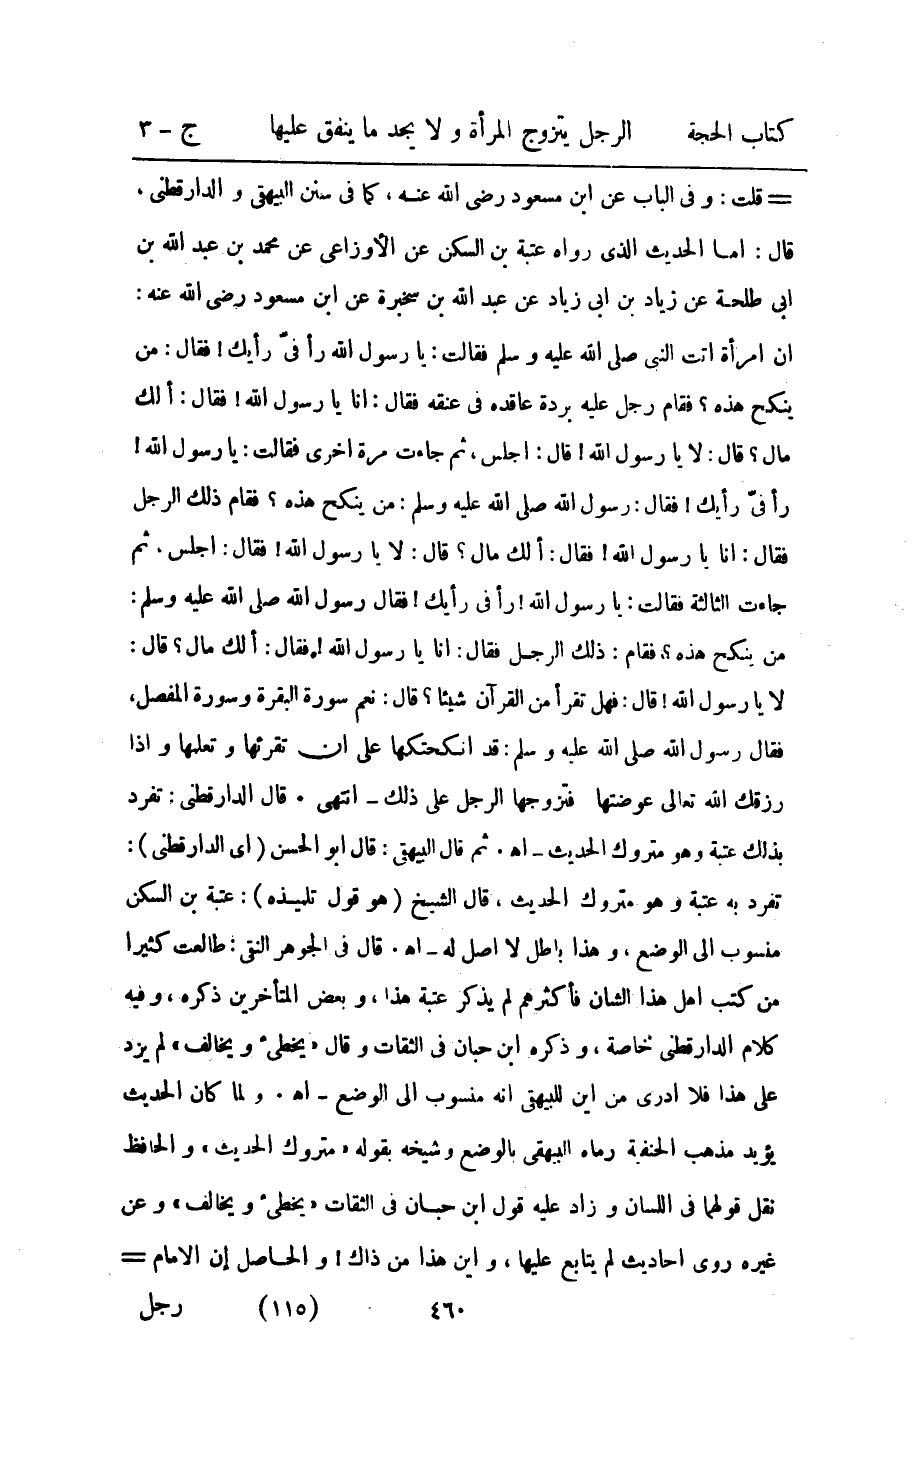 كتاب الحجة الرجل يتزوج المرأة و لا يجد ما ينفق عليها ج – ٣
= قلت : و فى الباب عن ابن مسعود رضى الله عنه ، كما فى سنن البيهقى و الدارقطنى .
قال : اما الحديث الذى رواه عتبة بن السكن عن الأوزاعى عن محمد بن عبد الله بن
ابى طلحة عن زياد بن ابى زياد عن عبد الله بن سخبرة عن ابن مسعود رضى الله عنه :
ان امرأة اتت النبى صلى الله عليه و سلم فقالت : يا رسول الله رأ فىّ رأيك ! فقال : من
ينكح هذه ؟ فقام رجل عليه بردة عاقده فى عنقه فقال : انا يا رسول الله ! فقال : أ لك
مال ؟ قال : لا يا رسول الله ! قال : اجلس ، ثم جاءت مرة اخرى فقالت : يا رسول الله !
رأ فىّ رأيك ! فقال : رسول الله صلى الله عليه وسلم : من ينكح هذه ؟ فقام ذلك الرجل
فقال : انا يا رسول الله ! فقال : أ لك مال ؟ قال : لا يا رسول الله ! فقال : اجلس . ثم
جاءت الثالثة فقالت : يا رسول الله ! رأ فى رأيك ! فقال رسول الله صلى الله عليه وسلم :
من ينكح هذه ؟ فقام : ذلك الرجل فقال : انا يا رسول الله ! فقال : أ لك مال ؟ قال :
لا يا رسول الله ! قال : فهل تقرأ من القرآن شيئا ؟ قال : نعم سورة البقرة وسورة المفصل ،
فقال رسول الله صلى الله عليه و سلم : قد انكحتكها على ان تقرئها و تعلمها و اذا
رزقك الله تعالى عوضتها فتزوجها الرجل على ذلك – انتهى . قال الدارقطنى : تفرد
بذلك عتبة وهو متروك الحديث – اه . ثم قال البيهقى : قال ابو الحسن ( اى الدارقطنى ) :
تفرد به عتبة و هو متروك الحديث ، قال الشيخ ( هو قول تلميذه ) : عتبة بن السكن
منسوب الى الوضع ، و هذا باطل لا اصل له – اه . قال فى الجوهر النقى : طالعت كثيرا
من كتب اهل هذا الشان فأكثرهم لم يذكر عتبة هذا ، و بعض المتأخرين ذكره ، و فيه
كلام الدارقطنى خاصة ، و ذكره ابن حبان فى الثقات و قال « يخطىء و يخالف » لم يزد
على هذا فلا ادرى من اين للبيهقى انه منسوب الى الوضع – اه . و لما كان الحديث
يؤيد مذهب الحنفية رماه البيهقى بالوضع و شيخه بقوله « متروك الحديث » و الحافظ
نقل قولهما فى اللسان و زاد عليه قول ابن حبان فى الثقات « يخطىء و يخالف » و عن
غيره روى احاديث لم يتابع عليها ، و اين هذا من ذاك ! و الحاصل إن الامام =
٤٦٠ (١١٥) رجل